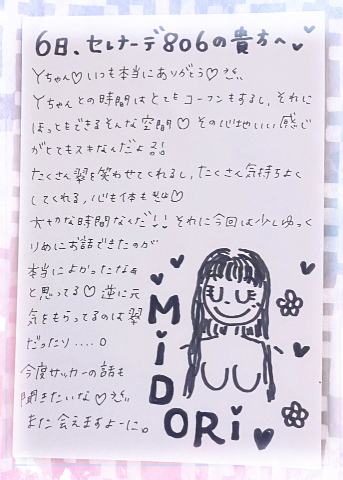 6日、セレナーデ806の貴方へ
Yちゃん♡いつも本当にありがとう♡
Yちゃんとの時間はとてもコーフンもするし、それに
ほっともできるそんな空間♡その心地いい感じ
がとてもスキなんだよ
たくさん翠を笑わせてくれるし、たくさん気持ちよく
してくれる、心も体も♡
大切な時間なんだ!!それに今回は少しゆっく
りめにお話できたのが
本当によかったなぁ
と思ってる♡逆に元
気をもらってるのは翠
だったり....。
今度サッカーの話も
聞きたいな♡
また会えますよーに。
MiDORi